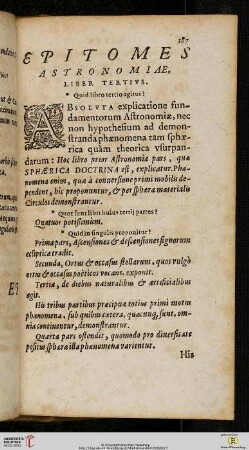 187
EPITOMES
ASTRONOMIAE,
LIBER TERTIVS.
* Quid libro tertio agitur?
ABSOLVTA explicatione fun-
damentorum Astronomiæ, nec
non hypothesium ad demon-
stranda phænomena tam sphæ-
rica quàm theorica vsurpan-
darum: Hoc libro prior Astronomiæ pars, quæ
SPHÆRICA DOCTRINA est, explicatur. Phæ-
nomena enim, quæ à conuersione primi mobilis de-
pendent, hic proponuntur, & per sphæræ materialis
Circulos demonstrantur.
* Quot sunt libri huius tertij partes?
Quatuor potissimùm.
* Quid in singulis proponitur?
Prima pars, Ascensiones & descensiones signorum
eclipticæ tradit.
Secunda, Ortus & occasus stellarum, quos vulgò
ortus & occasus poëticos vocant, exponit.
Tertia, de diebus naturalibus & artificialibus
agit.
His tribus partibus præcipua totius primi motus
phænomena, sub quibus cætera, quæcunq; sunt, om-
nia continentur, demonstrantur.
Quarta pars ostendit, quomodo pro diuersitate
positus sphæræ illa phænomena varientur.
His